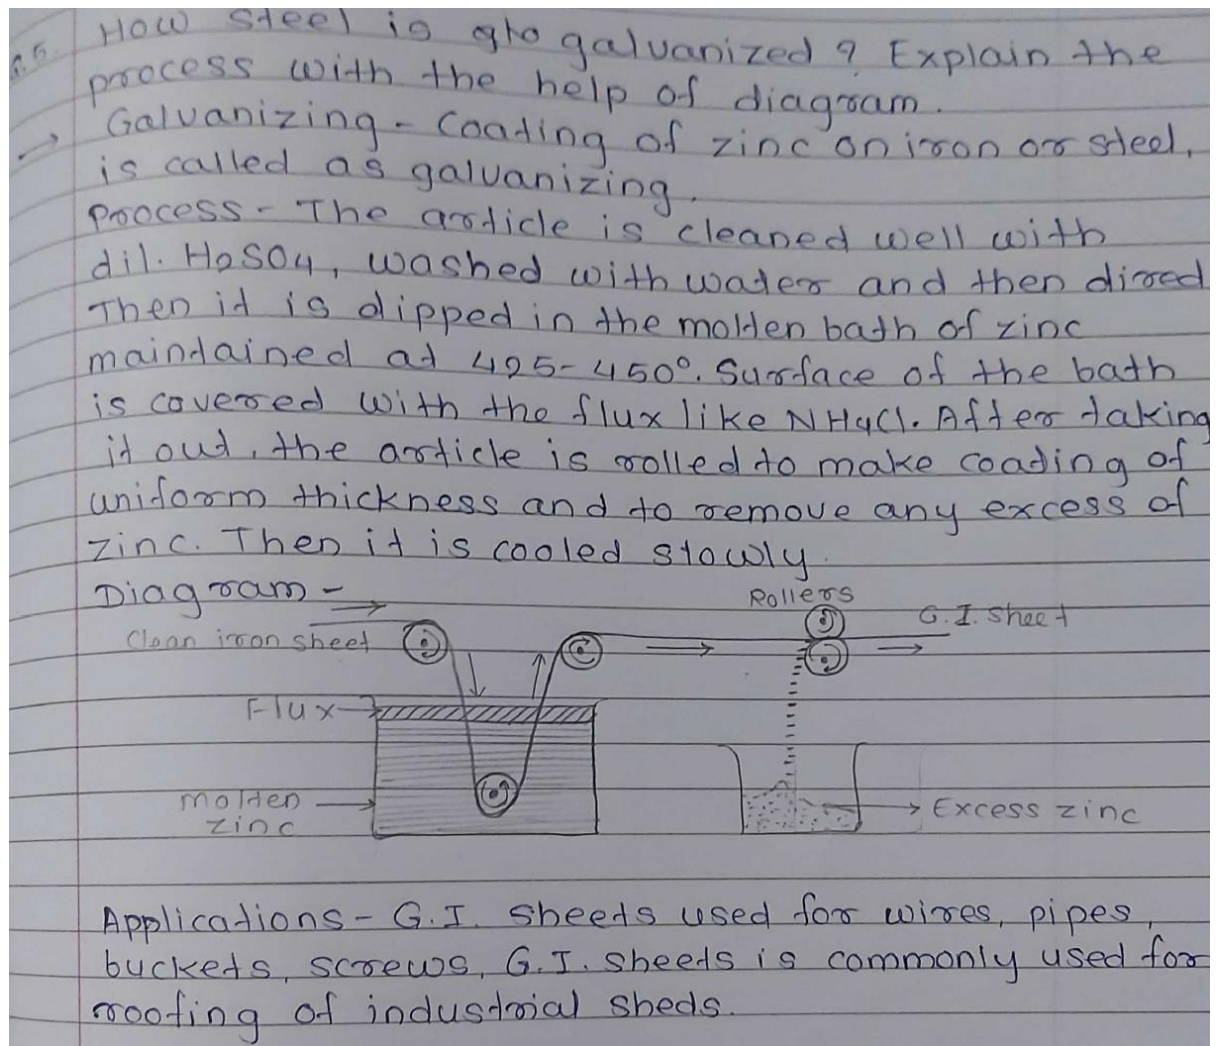 Q.5. How steel is galvanized ? Explain the
process with the help of diagram.
→ Galvanizing - Coating of zinc on iron or steel,
is called as galvanizing.
Process - The article is cleaned well with
dil. H2SO4, washed with water and then dired
Then it is dipped in the molten bath of zinc
maintained at 425-450°. Surface of the bath
is covered with the flux like NH4Cl. After taking
it out, the article is rolled to make coating of
uniform thickness and to remove any excess of
zinc. Then it is cooled slowly.
Diagram -
Rollers
G.I. Sheet
Clean iron sheet
Flux
Molten
zinc
Excess zinc
Applications - G.I. Sheets used for wires, pipes,
buckets, screws, G.I. sheets is commonly used for
roofing of industrial sheds.